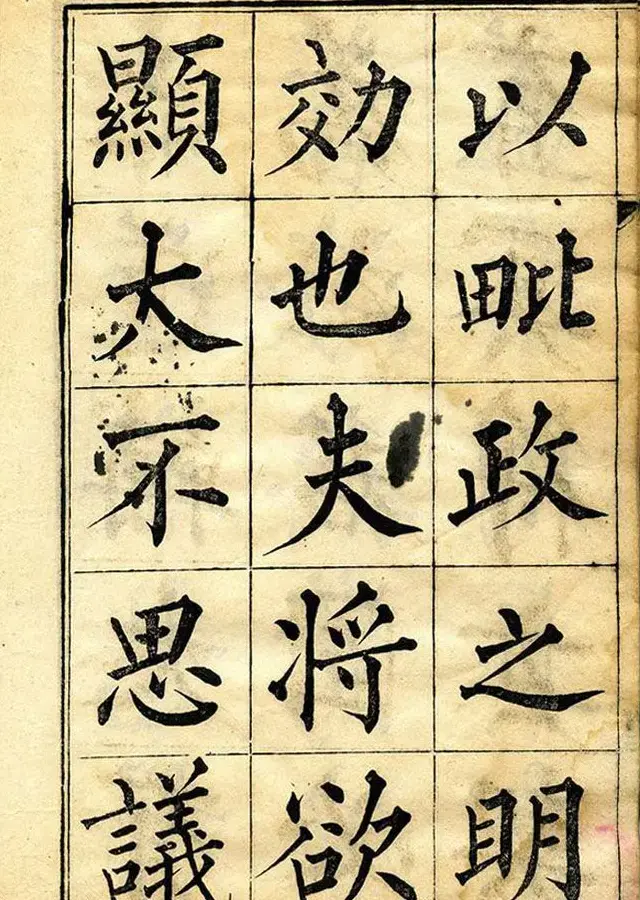 以毗政之明
効也夫将欲
顯大不思議